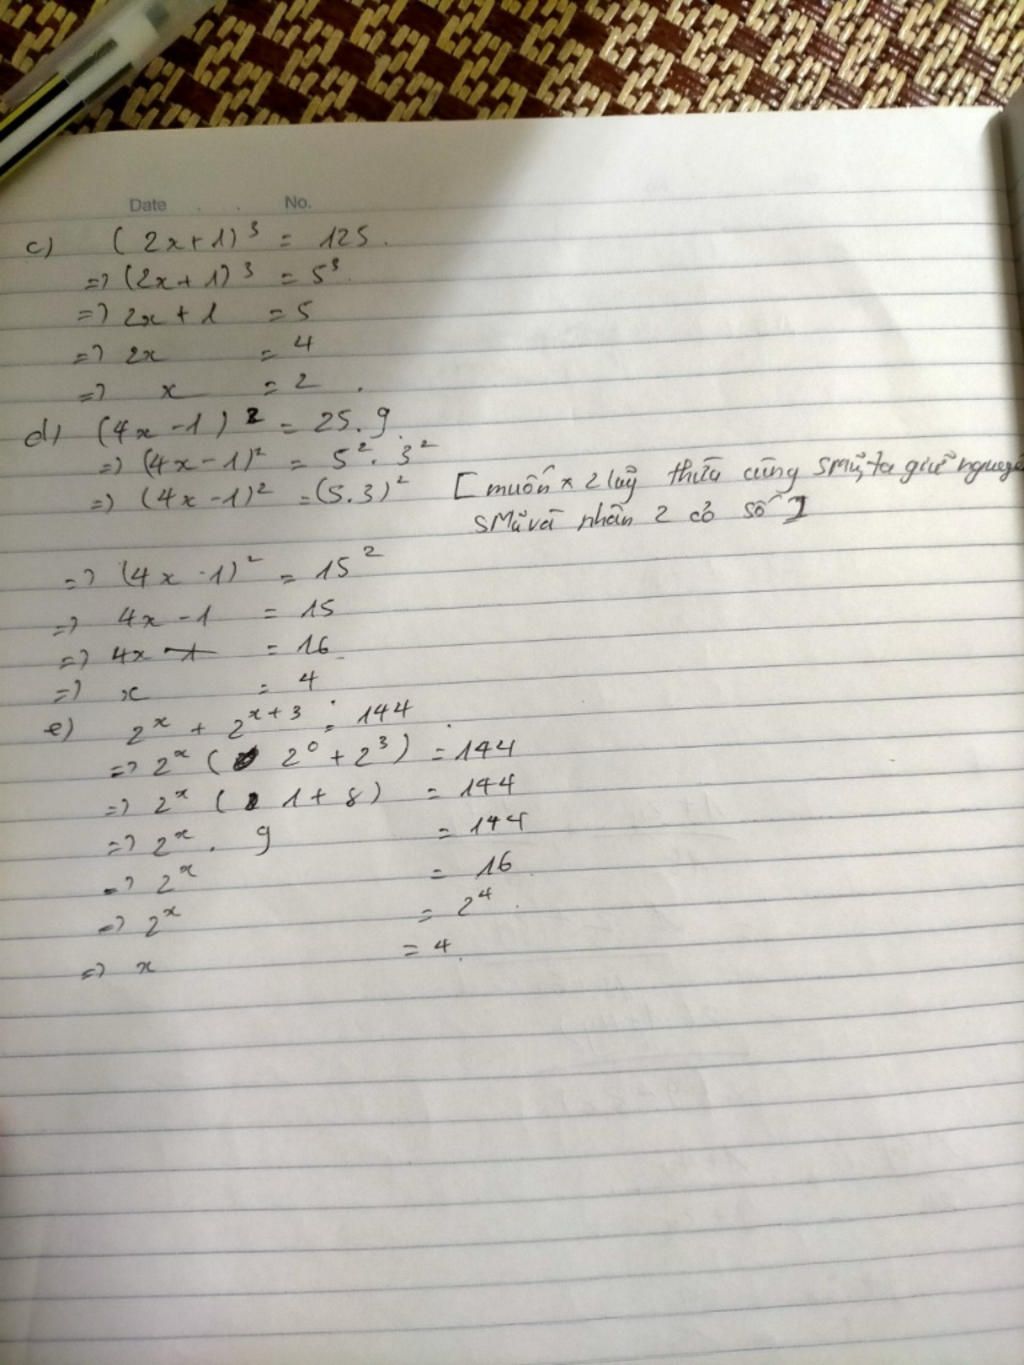 Date . . No.
c) (2x+1)³ = 125.
=> (2x+1)³ = 5³.
=> 2x + 1 = 5
=> 2x = 4
=> x = 2 .
d) (4x-1)² = 25.9.
=> (4x-1)² = 5².3²
=> (4x-1)² = (5.3)² [muốn x 2 luỹ thừa cùng SMũ, ta giữ nguyên
SMũ và nhân 2 cơ số]
=> (4x-1)² = 15²
=> 4x-1 = 15
=> 4x = 16
=> x = 4
e) 2ˣ + 2ˣ⁺³ = 144.
=> 2ˣ (2⁰ + 2³) = 144
=> 2ˣ (1+8) = 144
=> 2ˣ . 9 = 144
=> 2ˣ = 16
=> 2ˣ = 2⁴.
=> x = 4.